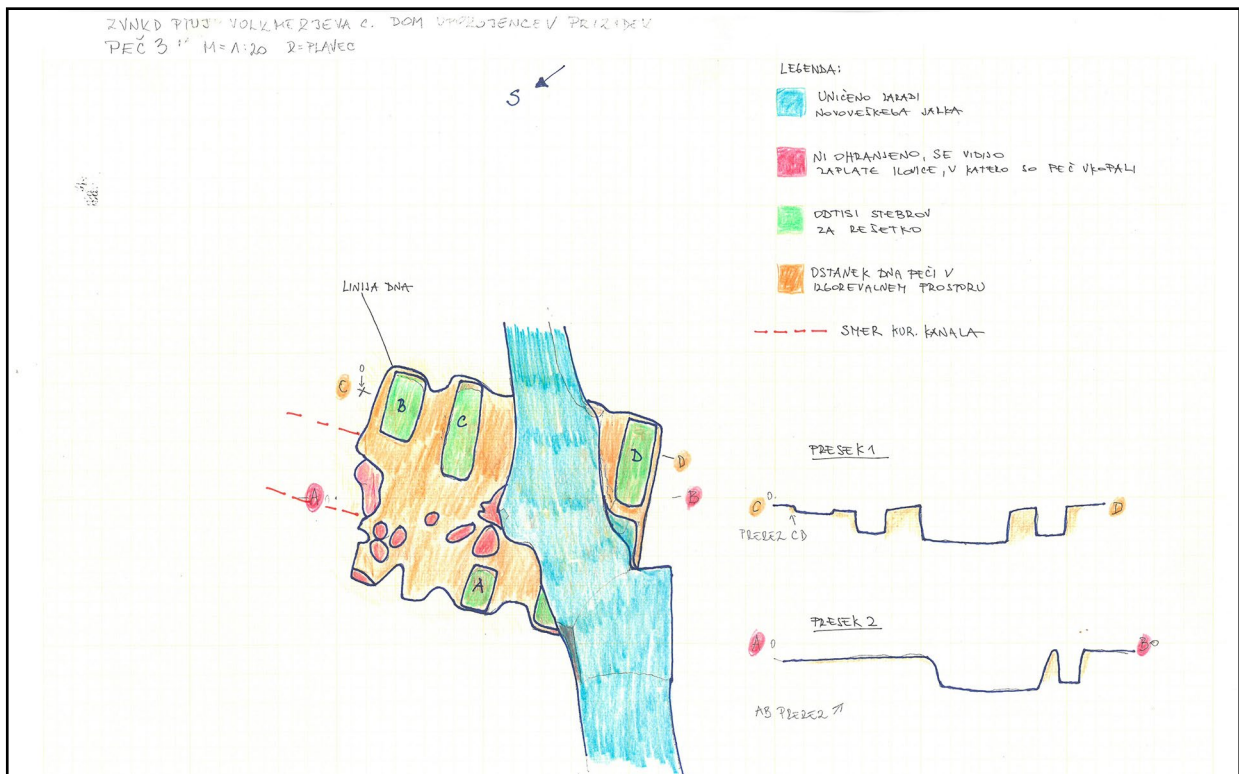 ZVNKD PTUJ VOLKMERJEVA C. DOM UPOKOJENCEV PRIZIDEK
PEČ 3 M=1:20 R=PLAVEC
S
LEGENDA:
UNIČENO ZARADI
NOVOVEŠKEGA JARKA
NI OHRANJENO, SE VIDIJO
ZAPLATE ILOVICE, V KATERO SO PEČ VKOPALI
ODTISI STEBROV
ZA REŠETKO
OSTANEK DNA PEČI V
IZGOREVALNEM PROSTORU
SMER KUR. KANALA
LINIJA DNA
0
C
B
C
D
D
A
B
A
PRESEK 1
C 0. D
PREREZ CD
PRESEK 2
A 0 B 0
AB PREREZ